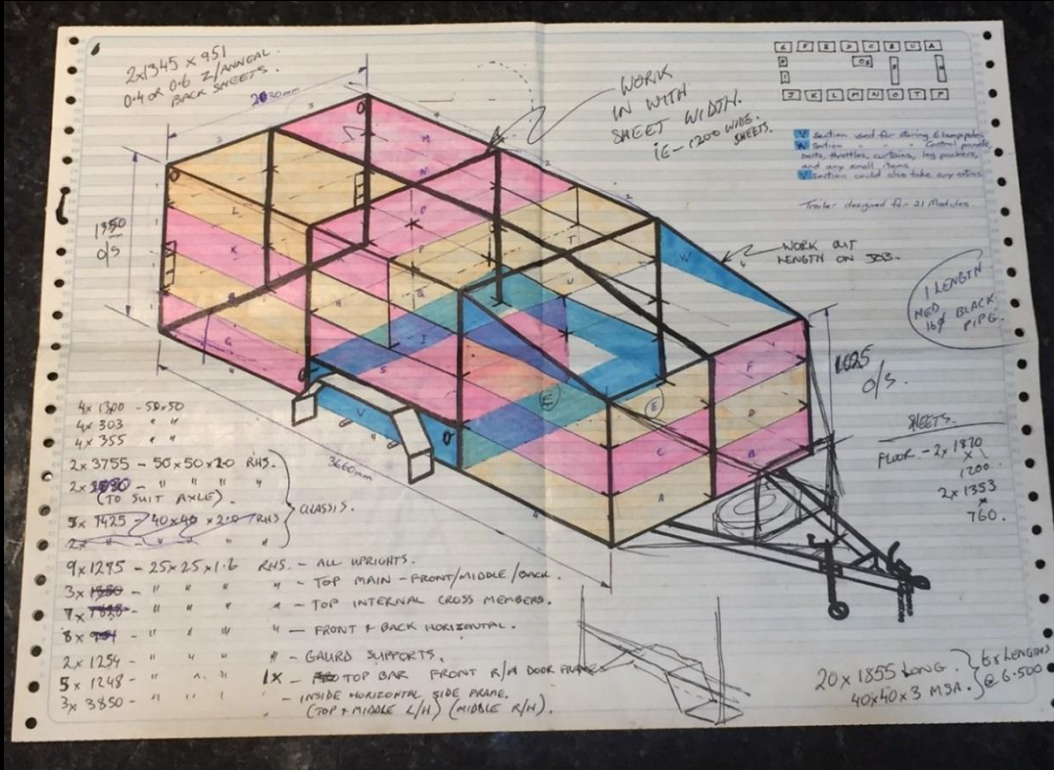 2x1345 x 951
0.4 OR 0.6 Z/ANNEAL
BACK SHEETS.
2030mm
WORK
IN WITH
SHEET WIDTH.
iE - 1200 WIDE.
SHEETS.
G F E D C B U A
J K L M N O T P
V Section used for storing 6 lampposts
W Section " " " Control panels,
bolts, throttles, curtains, leg packers,
and any small items
V Section could also take any extras
Trailer designed for 21 Modules
WORK OUT
LENGTH ON JOB.
1 LENGTH
MED BLACK
PIPE.
O/S
1025
O/S.
M
N
O
P
Q
L
K
G
H
I
S
T
U
W
V
F
E
E
D
C
B
A
3660mm
4x 1300 - 50x50
4x 303 " "
4x 355 " "
2x 3755 - 50x50x2.0 RHS.
2x - " " " "
(TO SUIT AXLE).
CHASSIS.
5x 1425 - 40x40 x2.0 RHS
2x " " " "
9x1295 - 25x25x1.6 RHS. - ALL UPRIGHTS.
3x - " " " " - TOP MAIN - FRONT/MIDDLE/BACK.
7x - " " " " - TOP INTERNAL CROSS MEMBERS.
8x - " " " " - FRONT & BACK HORIZONTAL.
2x 1254 - " " " " - GAURD SUPPORTS.
5x 1248 - " " " 1x - TOP BAR FRONT R/H DOOR FRAME
3x 3850 - " " " " - INSIDE HORIZONTAL SIDE FRAME.
(TOP & MIDDLE L/H) (MIDDLE R/H).
SHEETS.
FLOOR - 2x 1820
x
1200.
2x 1353
x
760.
20 x 1855 LONG.
40x40x3 MSA.
6x LENGTHS
@ 6.500